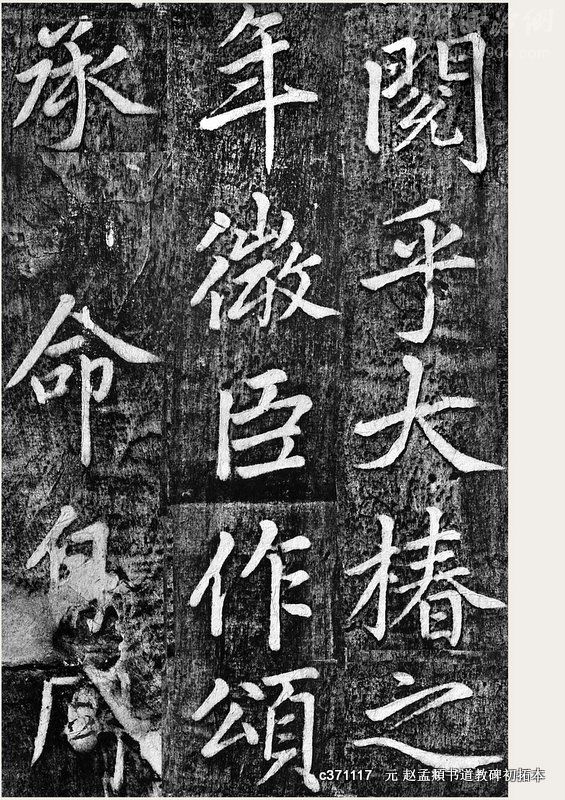 閱乎大椿之
年微臣作頌
承命
c371117 元 赵孟頫书道教碑初拓本